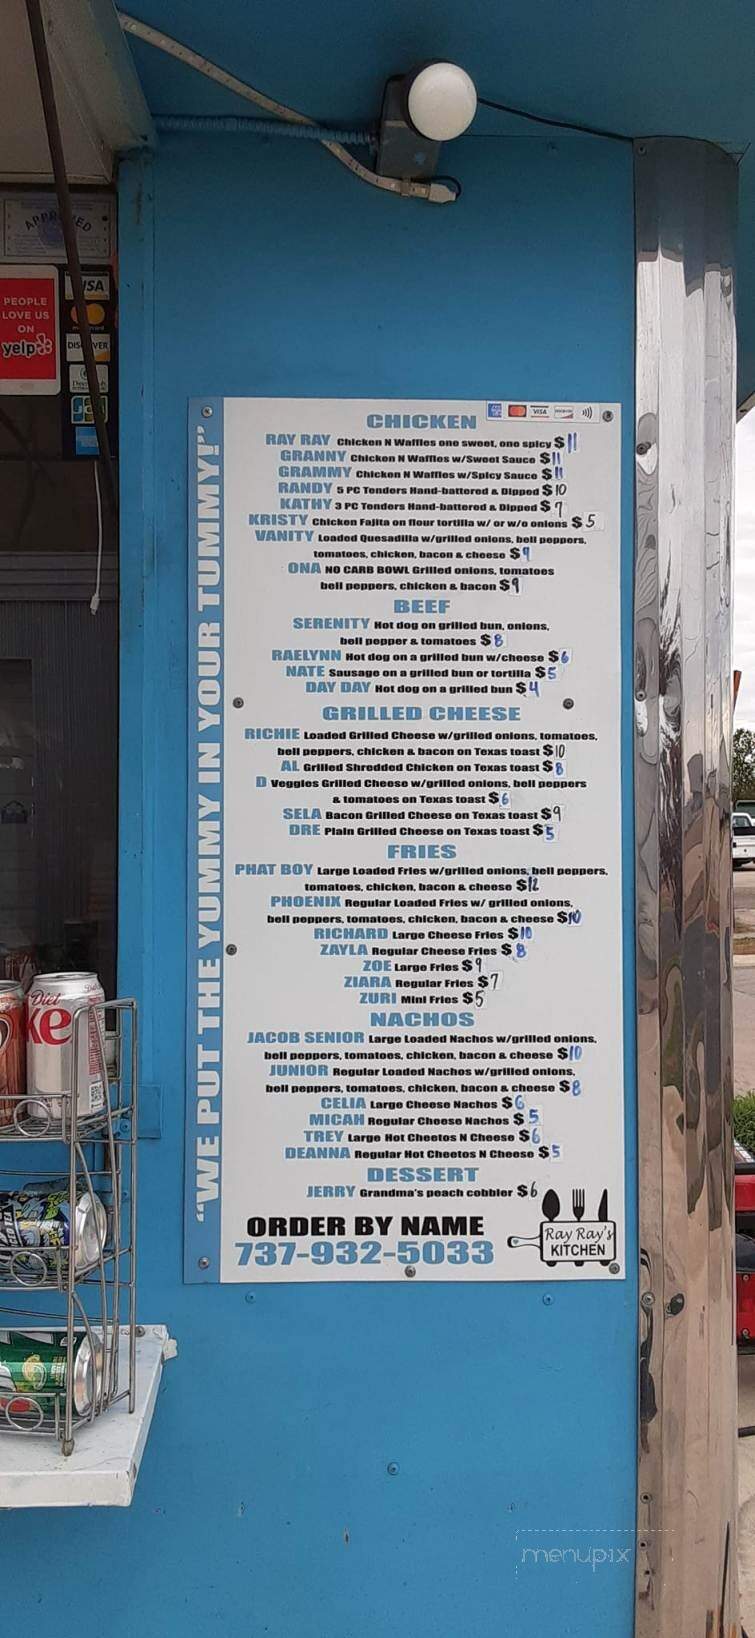 APPROVED
PEOPLE
LOVE US
ON
yelp
VISA
mastercard
DISCOVER
JCB
Diet
ke
"WE PUT THE YUMMY IN YOUR TUMMY!"
VISA
CHICKEN
RAY RAY Chicken N Waffles one sweet, one spicy $11
GRANNY Chicken N Waffles w/Sweet Sauce $11
GRAMMY Chicken N Waffles w/Spicy Sauce $11
RANDY 5 PC Tenders Hand-battered & Dipped $10
KATHY 3 PC Tenders Hand-battered & Dipped $7
KRISTY Chicken Fajita on flour tortilla w/ or w/o onions $5
VANITY Loaded Quesadilla w/grilled onions, bell peppers,
tomatoes, chicken, bacon & cheese $9
ONA NO CARB BOWL Grilled onions, tomatoes
bell peppers, chicken & bacon $9
BEEF
SERENITY Hot dog on grilled bun, onions,
bell pepper & tomatoes $8
RAELYNN Hot dog on a grilled bun w/cheese $6
NATE Sausage on a grilled bun or tortilla $5
DAY DAY Hot dog on a grilled bun $4
GRILLED CHEESE
RICHIE Loaded Grilled Cheese w/grilled onions, tomatoes,
bell peppers, chicken & bacon on Texas toast $10
AL Grilled Shredded Chicken on Texas toast $8
D Veggies Grilled Cheese w/grilled onions, bell peppers
& tomatoes on Texas toast $6
SELA Bacon Grilled Cheese on Texas toast $9
DRE Plain Grilled Cheese on Texas toast $5
FRIES
PHAT BOY Large Loaded Fries w/grilled onions, bell peppers,
tomatoes, chicken, bacon & cheese $12
PHOENIX Regular Loaded Fries w/ grilled onions,
bell peppers, tomatoes, chicken, bacon & cheese $10
RICHARD Large Cheese Fries $10
ZAYLA Regular Cheese Fries $8
ZOE Large Fries $9
ZIARA Regular Fries $7
ZURI Mini Fries $5
NACHOS
JACOB SENIOR Large Loaded Nachos w/grilled onions,
bell peppers, tomatoes, chicken, bacon & cheese $10
JUNIOR Regular Loaded Nachos w/grilled onions,
bell peppers, tomatoes, chicken, bacon & cheese $8
CELIA Large Cheese Nachos $6
MICAH Regular Cheese Nachos $5
TREY Large Hot Cheetos N Cheese $6
DEANNA Regular Hot Cheetos N Cheese $5
DESSERT
JERRY Grandma's peach cobbler $6
ORDER BY NAME
737-932-5033
Ray Ray's
KITCHEN
menupix